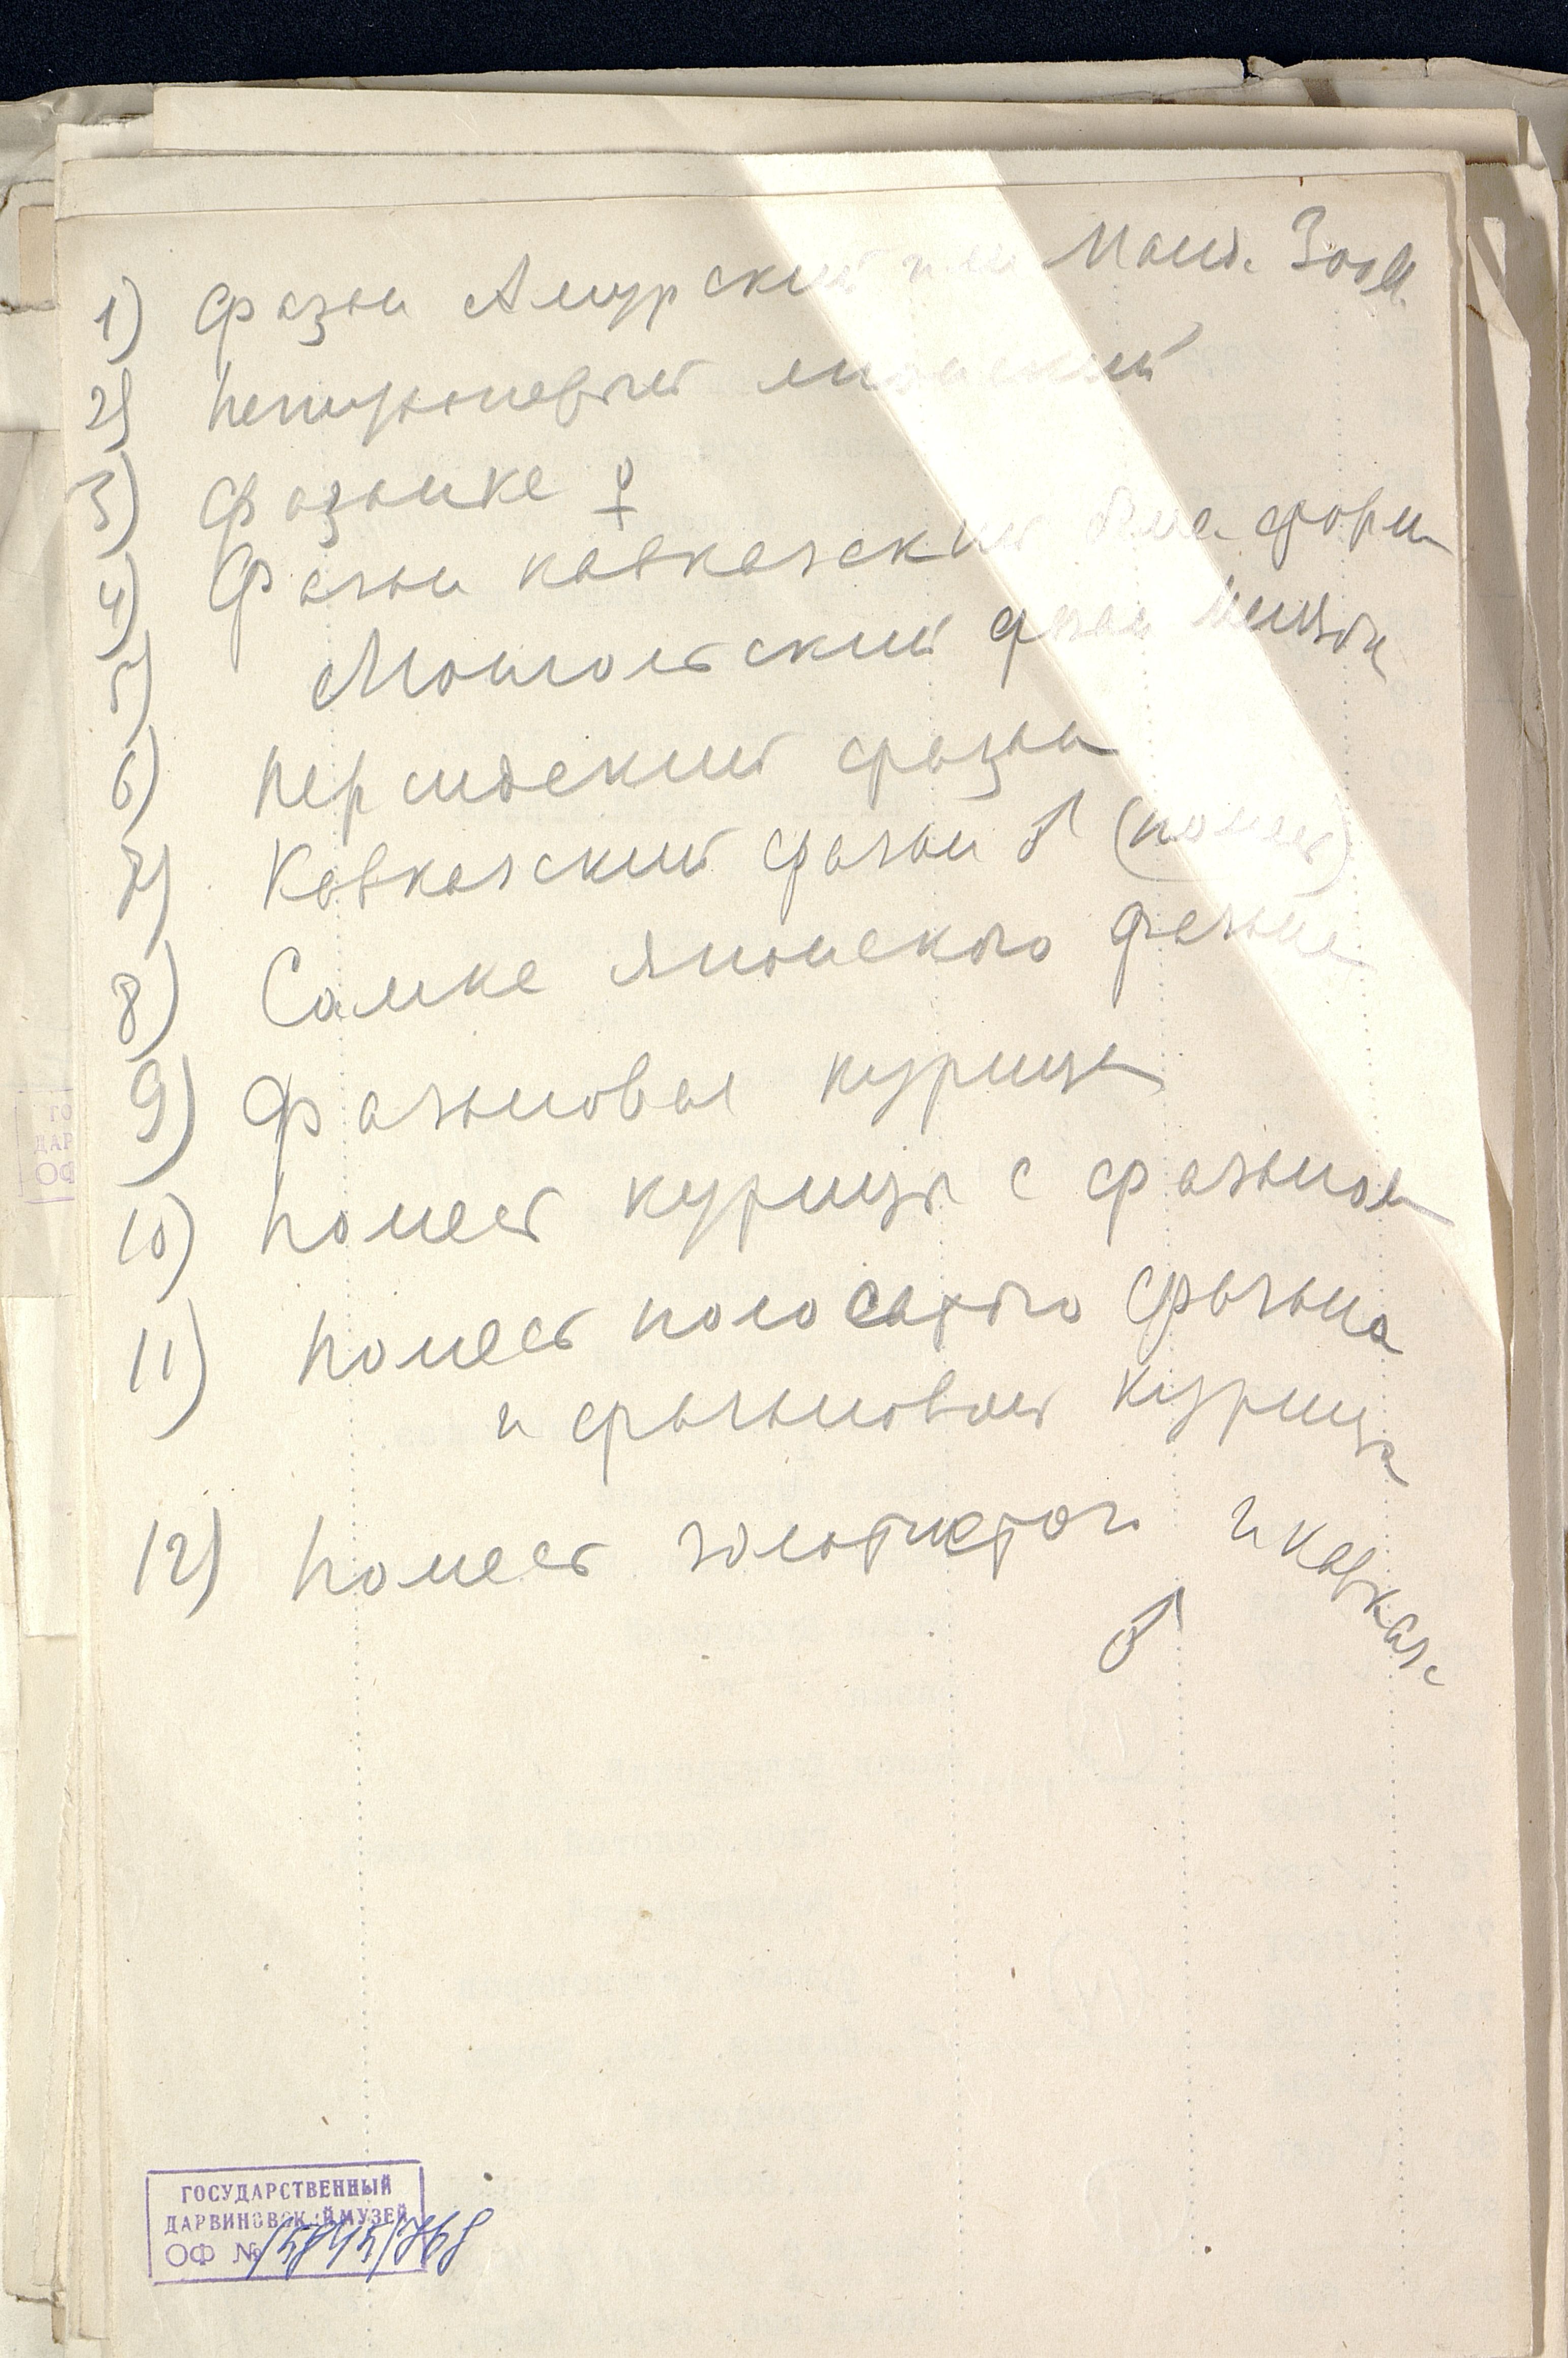 1) Фазан Амурский или Манд. Зоол.
2)
3) Фазанка ♀
4) Фазан кавказский форм
5) Монгольский фазан
6) Персидский фазан
7) Кавказский фазан ♂ (помесь)
8) Самка японского фазана
9) Фазановая курица
10) Помесь курицы с фазаном
11) Помесь полосатого фазана
и фазановой курицы
12) Помесь золотистого и кавказ.
♂
ГОСУДАРСТВЕННЫЙ
ДАРВИНОВСКИЙ МУЗЕЙ
ОФ № 15845/768